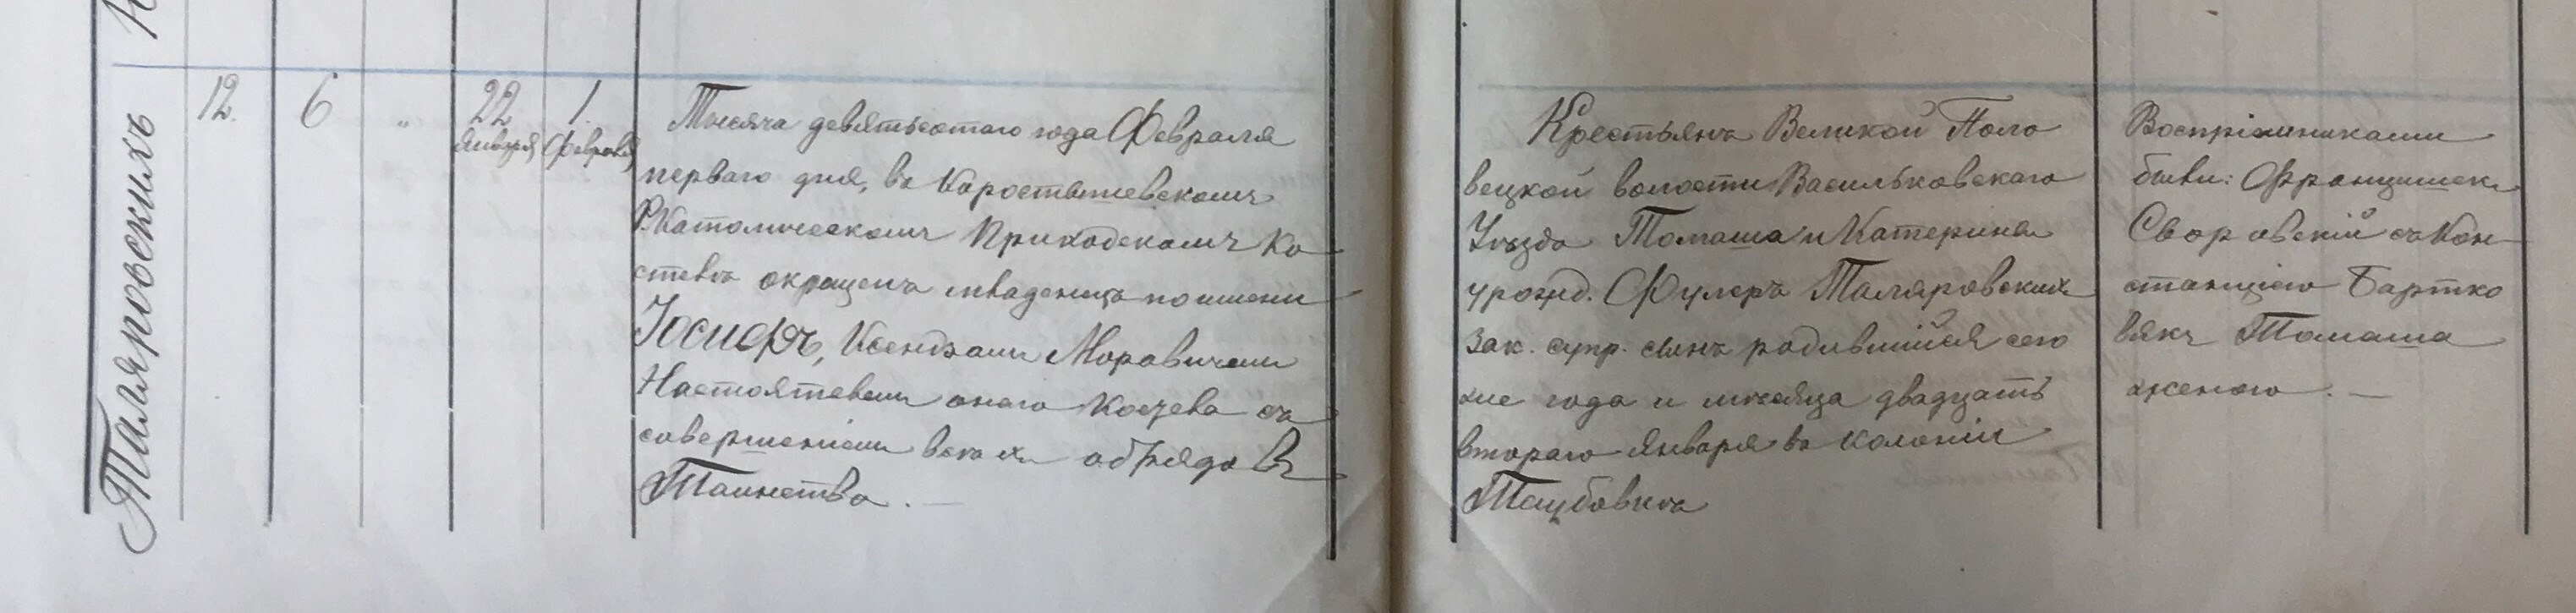 Таляровскихъ
12. 6 „ 22 Января 1. Февраля
Тысяча девятьсотаго года Февраля
перваго дня, въ Коростышевскомъ
Р. Католическомъ Приходскомъ Ко
стелѣ окрещенъ младенецъ по имени
Іосифъ, Ксендзомъ Моравичемъ
Настоятелемъ онаго Костела съ
совершеніемъ всѣхъ обрядовъ
Таинства. —
Крестьянъ Великой Поло
вецкой волости Васильковскаго
Уѣзда Томаша и Катерины
урожд. Фулеръ Таляровскихъ
зак. супр. сынъ родившійся сего
же года и мѣсяца двадцать
втораго Января въ колоніи
Воспріемниками
были: Францишекъ
Своровскій съ Кон
станціею Бартко
вякъ Томаша
женою. —